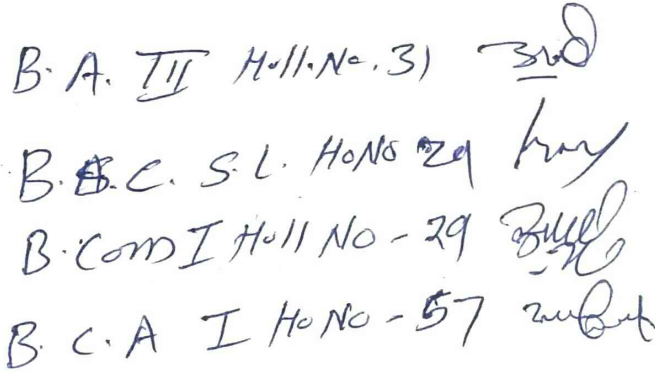 B. A. III Holl. No. 31
B.S.C. S.L. HoNo 29
B. Com I Holl No - 29
B. C. A I HoNo - 57